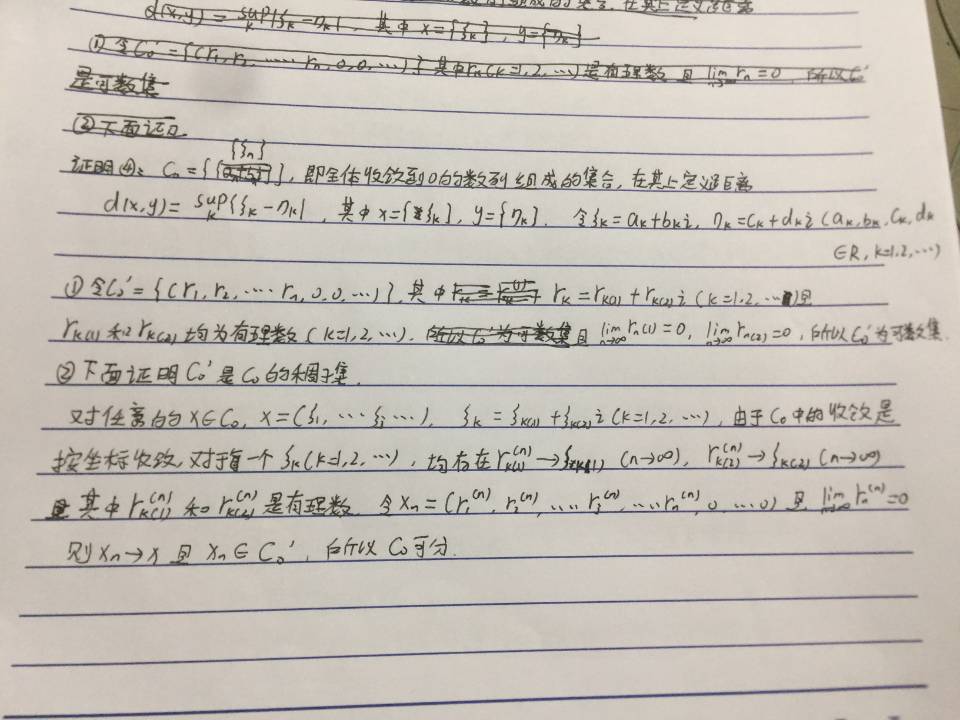 d(x,y) = sup|ξk-ηk|, 其中 x={ξk}, y={ηk}
① 令C0'={(r1, r2, …… rn, 0, 0, …)} 其中rk(k=1,2,…)是有理数 且 lim rn=0, 所以C0'
是可数集
② 下面证
证明④: C0={{ξn}}, 即全体收敛到0的数列组成的集合, 在其上定义距离
d(x,y) = sup|ξk-ηk|, 其中 x={ξk}, y={ηk}. 令ξk=ak+bki, ηk=ck+dki (ak,bk,ck,dk
∈R, k=1,2,…)
① 令C0'={(r1, r2, … rn, 0, 0, …)}, 其中 rk=rk(1)+rk(2)i (k=1,2,…)且
rk(1)和rk(2)均为有理数(k=1,2,…). 所以C0'为可数集且 lim n→∞ rn(1)=0, lim n→∞ rn(2)=0, 所以C0'为可数集.
② 下面证明C0'是C0的稠子集.
对任意的x∈C0, x=(ξ1, … ξi, …), ξk=ξk(1)+ξk(2)i (k=1,2,…), 由于C0中的收敛是
按坐标收敛, 对于每一个ξk(k=1,2,…), 均存在rk(1)^(n)→ξk(1) (n→∞), rk(2)^(n)→ξk(2) (n→∞)
且其中rk(1)^(n)和rk(2)^(n)是有理数, 令xn=(r1^(n), r2^(n), …, ri^(n), …, rn^(n), 0, …, 0) 且 lim n→∞ rn^(n)=0
则xn→x 且 xn∈C0', 所以C0可分.